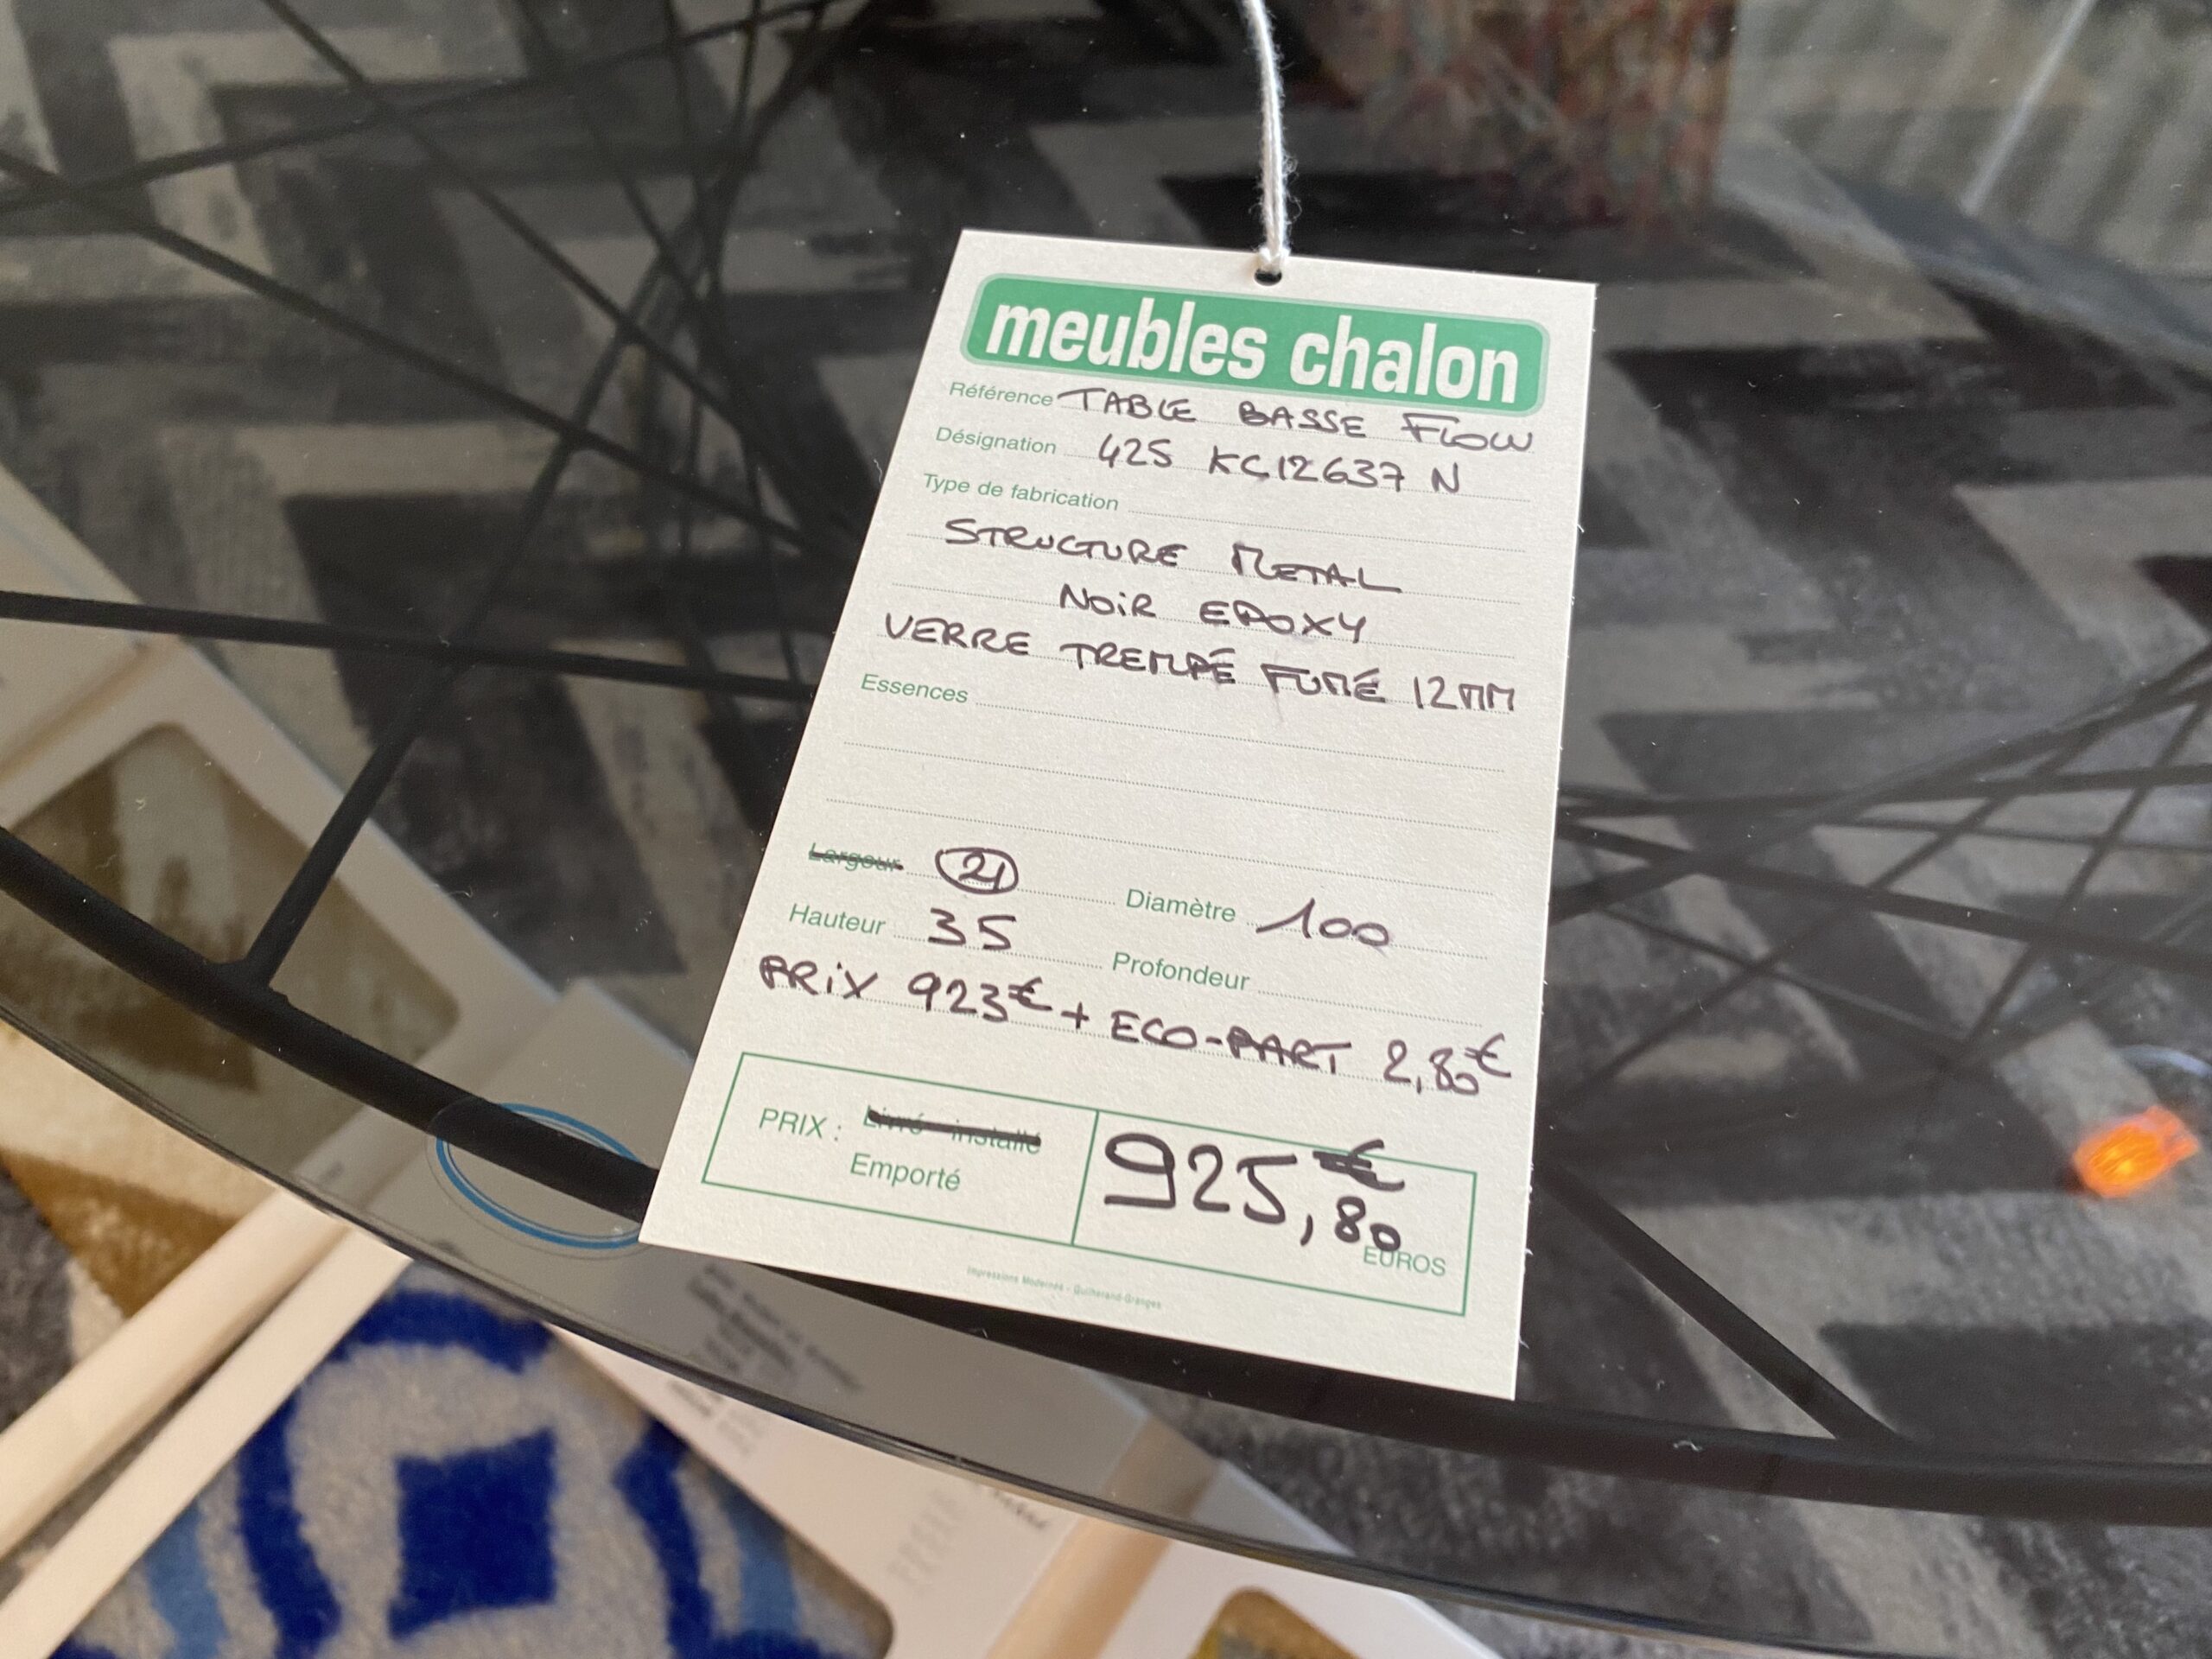 meubles chalon
Référence TABLE BASSE FLOW
Désignation 425 KC12637 N
Type de fabrication
STRUCTURE METAL
NOIR EPOXY
VERRE TREMPÉ FUMÉ 12MM
Essences
Largeur 21 Diamètre 100
Hauteur 35 Profondeur
PRIX 923€ + ECO-PART 2,80€
PRIX : Livré - installé 925,80 €
Emporté
EUROS
Impressions Modernes - Guilherand-Granges